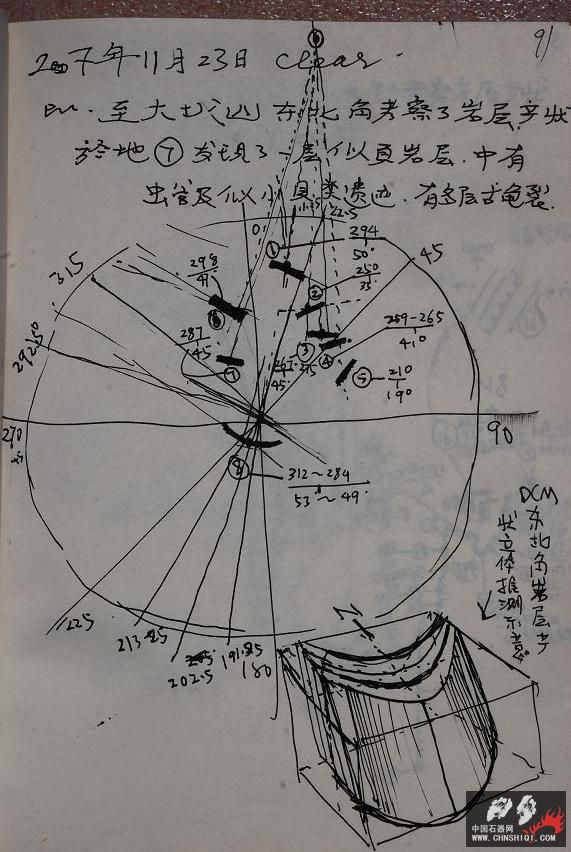 91
2007年11月23日 clear.
至大坟山 东北角考察了岩层产状
於地⑦发现了一层似页岩层.中有
虫管及似小贝类遗迹.有多层古龟裂.
0
11.25
22.5
45
90
180
191.25
202.5
213.25
225
270
292.50
315
① 294/50°
② 250/35°
③
④ 259-265/41°
⑤ 210/19°
⑥ 298/41°
⑦ 287/45°
267/45°
312~284/53~49°
N
DCM
东北角岩层产
状立体推测示意
中国石器网
WWW.CHNSHIQI.COM